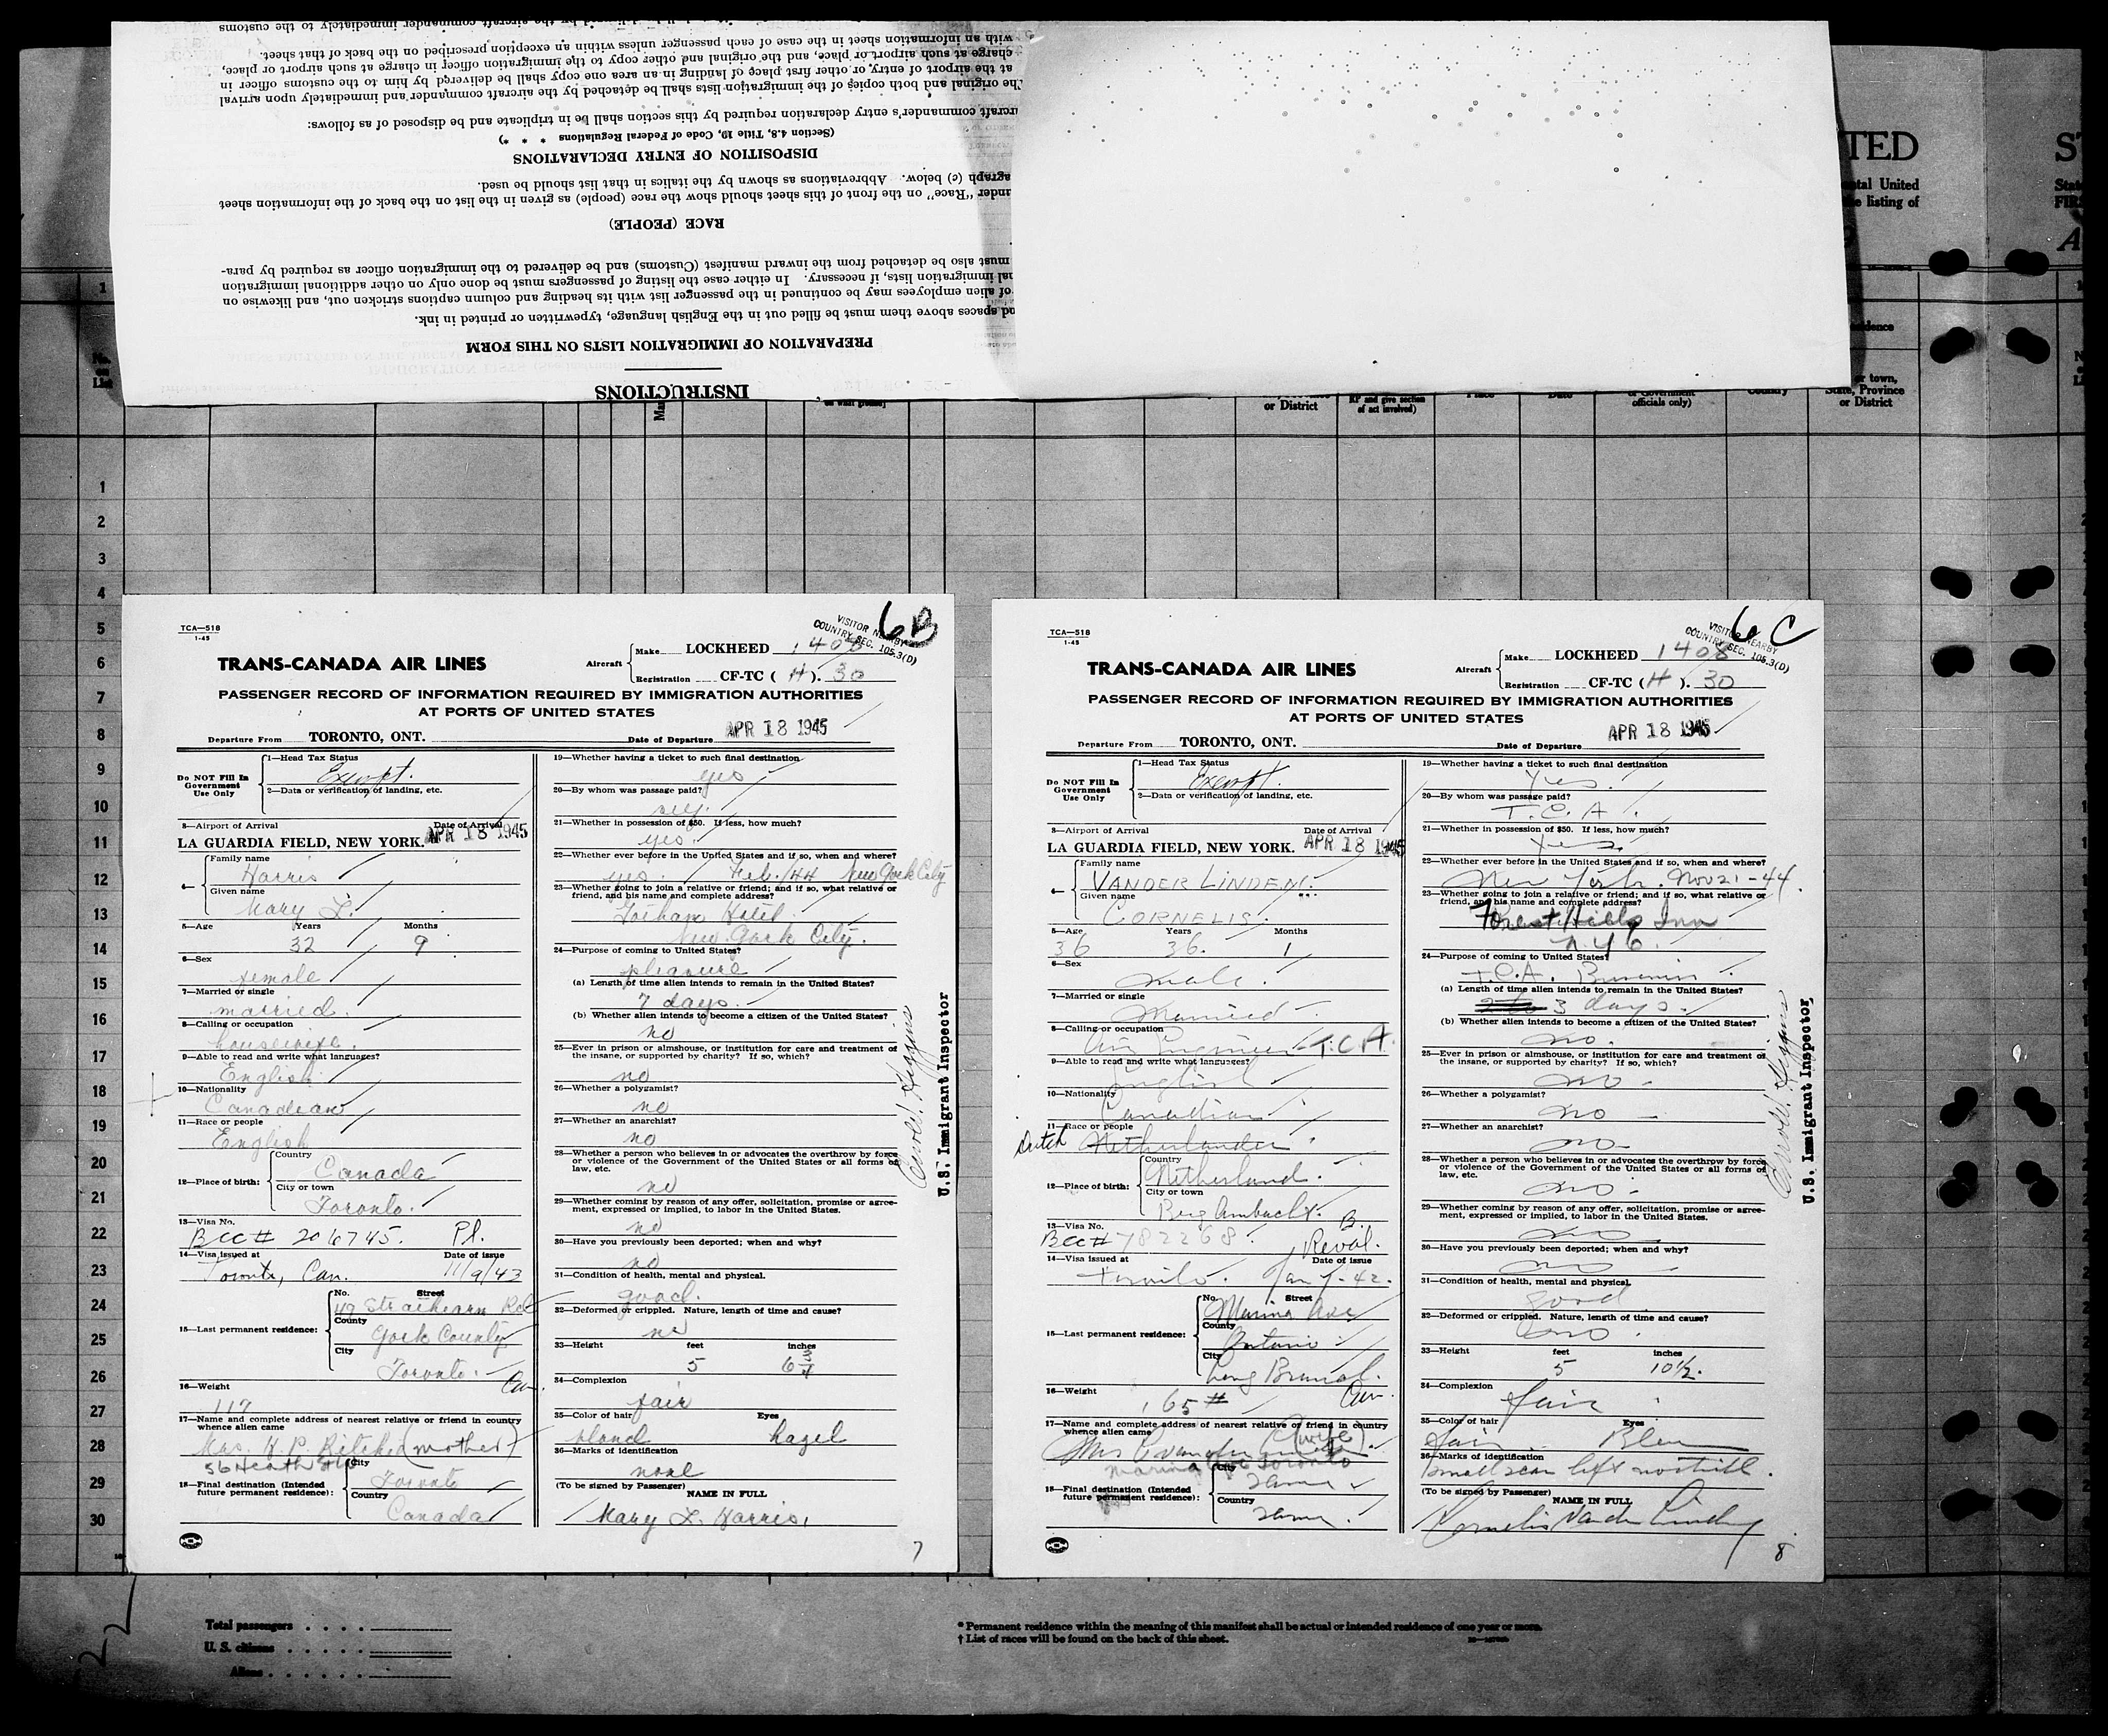 INSTRUCTIONS
PREPARATION OF IMMIGRATION LISTS ON THIS FORM
spaces above them must be filled out in the English language, typewritten or printed in ink.
of alien employees may be continued in the passenger list with its heading and column captions stricken out, and likewise on
immigration lists, if necessary. In either case the listing of passengers must be done only on other additional immigration
must also be detached from the inward manifest (Customs) and be delivered to the immigration officer as required by para-
RACE (PEOPLE)
under "Race" on the front of this sheet should show the race (people) as given in the list on the back of the information sheet
(c) below. Abbreviations as shown by the italics in that list should be used.
DISPOSITION OF ENTRY DECLARATIONS
(Section 4.8, Title 19, Code of Federal Regulations * * *)
aircraft commander's entry declaration required by this section shall be in triplicate and be disposed of as follows:
The original and both copies of the immigration lists shall be detached by the aircraft commander and immediately upon arrival
at the airport of entry or other first place of landing in an area one copy shall be delivered by him to the customs officer in
charge at such airport or place, and the original and other copy to the immigration officer in charge at such airport or place,
with an information sheet in the case of each passenger unless within an exception prescribed on the back of that sheet.
by the aircraft commander immediately to the customs
TED
United
listing of
or town,
State, Province
or District
or District
RP and give section
of act involved)
Place
Date
officials only)
Country
No.
on
List
1
1
2
3
4
5
6
7
8
9
10
11
12
13
14
15
16
17
18
19
20
21
22
23
24
25
26
27
28
29
30
TCA—518
1-45
6B
VISITOR NEARBY
COUNTRY SEC. 105.3(D)
TRANS-CANADA AIR LINES
Aircraft
Make LOCKHEED 1408
Registration CF-TC ( H ). 30
PASSENGER RECORD OF INFORMATION REQUIRED BY IMMIGRATION AUTHORITIES
AT PORTS OF UNITED STATES
Departure From TORONTO, ONT. Date of Departure APR 18 1945
Do NOT Fill In
Government
Use Only
1—Head Tax Status
Exempt.
2—Data or verification of landing, etc.
3—Airport of Arrival Date of Arrival
LA GUARDIA FIELD, NEW YORK. APR 18 1945
4—
Family name
Harris
Given name
Mary L.
5—Age Years Months
32 9
6—Sex
female
7—Married or single
married.
8—Calling or occupation
housewife.
9—Able to read and write what languages?
English
10—Nationality
Canadian
11—Race or people
English
12—Place of birth:
Country
Canada
City or town
Toronto.
13—Visa No.
BCC# 206745. Pl.
14—Visa issued at Date of issue
Toronto, Can. 11/9/43
15—Last permanent residence:
No. Street
49 Strathearn Rd
County
York County
City
Toronto. Can.
16—Weight
117
17—Name and complete address of nearest relative or friend in country
whence alien came
Mrs. H. P. Ritchie (mother)
56 Heath St W
18—Final destination (Intended
future permanent residence):
City
Toronto
Country
Canada
19—Whether having a ticket to such final destination
yes
20—By whom was passage paid?
self.
21—Whether in possession of $50. If less, how much?
yes.
22—Whether ever before in the United States and if so, when and where?
yes. Feb. /44 New York City
23—Whether going to join a relative or friend; and if so, what relative or
friend, and his name and complete address?
Gotham Hotel
New York City.
24—Purpose of coming to United States?
pleasure
(a) Length of time alien intends to remain in the United States?
7 days.
(b) Whether alien intends to become a citizen of the United States?
no
25—Ever in prison or almshouse, or institution for care and treatment of
the insane, or supported by charity? If so, which?
no
26—Whether a polygamist?
no
27—Whether an anarchist?
no
28—Whether a person who believes in or advocates the overthrow by force
or violence of the Government of the United States or all forms of
law, etc.
no
29—Whether coming by reason of any offer, solicitation, promise or agree-
ment, expressed or implied, to labor in the United States.
no
30—Have you previously been deported; when and why?
no
31—Condition of health, mental and physical.
good.
32—Deformed or crippled. Nature, length of time and cause?
no
33—Height feet inches
5 6 3/4
34—Complexion
fair
35—Color of hair Eyes
blond hazel
36—Marks of identification
none
(To be signed by Passenger) NAME IN FULL
Mary L. Harris.
U.S. Immigrant Inspector
7
TCA—518
1-45
6C
VISITOR NEARBY
COUNTRY SEC. 105.3(D)
TRANS-CANADA AIR LINES
Aircraft
Make LOCKHEED 1408
Registration CF-TC ( H ). 30
PASSENGER RECORD OF INFORMATION REQUIRED BY IMMIGRATION AUTHORITIES
AT PORTS OF UNITED STATES
Departure From TORONTO, ONT. Date of Departure APR 18 1945
Do NOT Fill In
Government
Use Only
1—Head Tax Status
Exempt.
2—Data or verification of landing, etc.
3—Airport of Arrival Date of Arrival
LA GUARDIA FIELD, NEW YORK. APR 18 1945
4—
Family name
VANDER LINDEN.
Given name
CORNELIS.
5—Age Years Months
36 36. 1
6—Sex
male.
7—Married or single
Married
8—Calling or occupation
Air Engineer T.C.A.
9—Able to read and write what languages?
English
10—Nationality
Canadian
11—Race or people
Dutch Netherlander
12—Place of birth:
Country
Netherland.
City or town
Berg Ambacht. B.
13—Visa No.
BCC# 782268. Reval.
14—Visa issued at Date of issue
Toronto. Jan 7-42.
15—Last permanent residence:
No. Street
Marina Ave
County
Ontario
City
Long Branch. Can.
16—Weight
165 #
17—Name and complete address of nearest relative or friend in country
whence alien came
Mrs C Vander Linden (wife).
Marina Ave Toronto
18—Final destination (Intended
future permanent residence):
City
same
Country
same.
19—Whether having a ticket to such final destination
yes.
20—By whom was passage paid?
T.C.A.
21—Whether in possession of $50. If less, how much?
yes
22—Whether ever before in the United States and if so, when and where?
New York. Nov 21-44.
23—Whether going to join a relative or friend; and if so, what relative or
friend, and his name and complete address?
Forest Hills Inn
N.Y.C.
24—Purpose of coming to United States?
T.C.A. Business
(a) Length of time alien intends to remain in the United States?
3 days.
(b) Whether alien intends to become a citizen of the United States?
no.
25—Ever in prison or almshouse, or institution for care and treatment of
the insane, or supported by charity? If so, which?
no
26—Whether a polygamist?
no
27—Whether an anarchist?
no
28—Whether a person who believes in or advocates the overthrow by force
or violence of the Government of the United States or all forms of
law, etc.
no
29—Whether coming by reason of any offer, solicitation, promise or agree-
ment, expressed or implied, to labor in the United States.
no
30—Have you previously been deported; when and why?
no
31—Condition of health, mental and physical.
good
32—Deformed or crippled. Nature, length of time and cause?
no
33—Height feet inches
5 10½.
34—Complexion
fair
35—Color of hair Eyes
fair Blue
36—Marks of identification
small scar left nostrill.
(To be signed by Passenger) NAME IN FULL
Cornelis Vander Linden
U.S. Immigrant Inspector
8
22
Total passengers
U. S. citizens
Aliens
* Permanent residence within the meaning of this manifest shall be actual or intended residence of one year or more.
† List of races will be found on the back of this sheet.